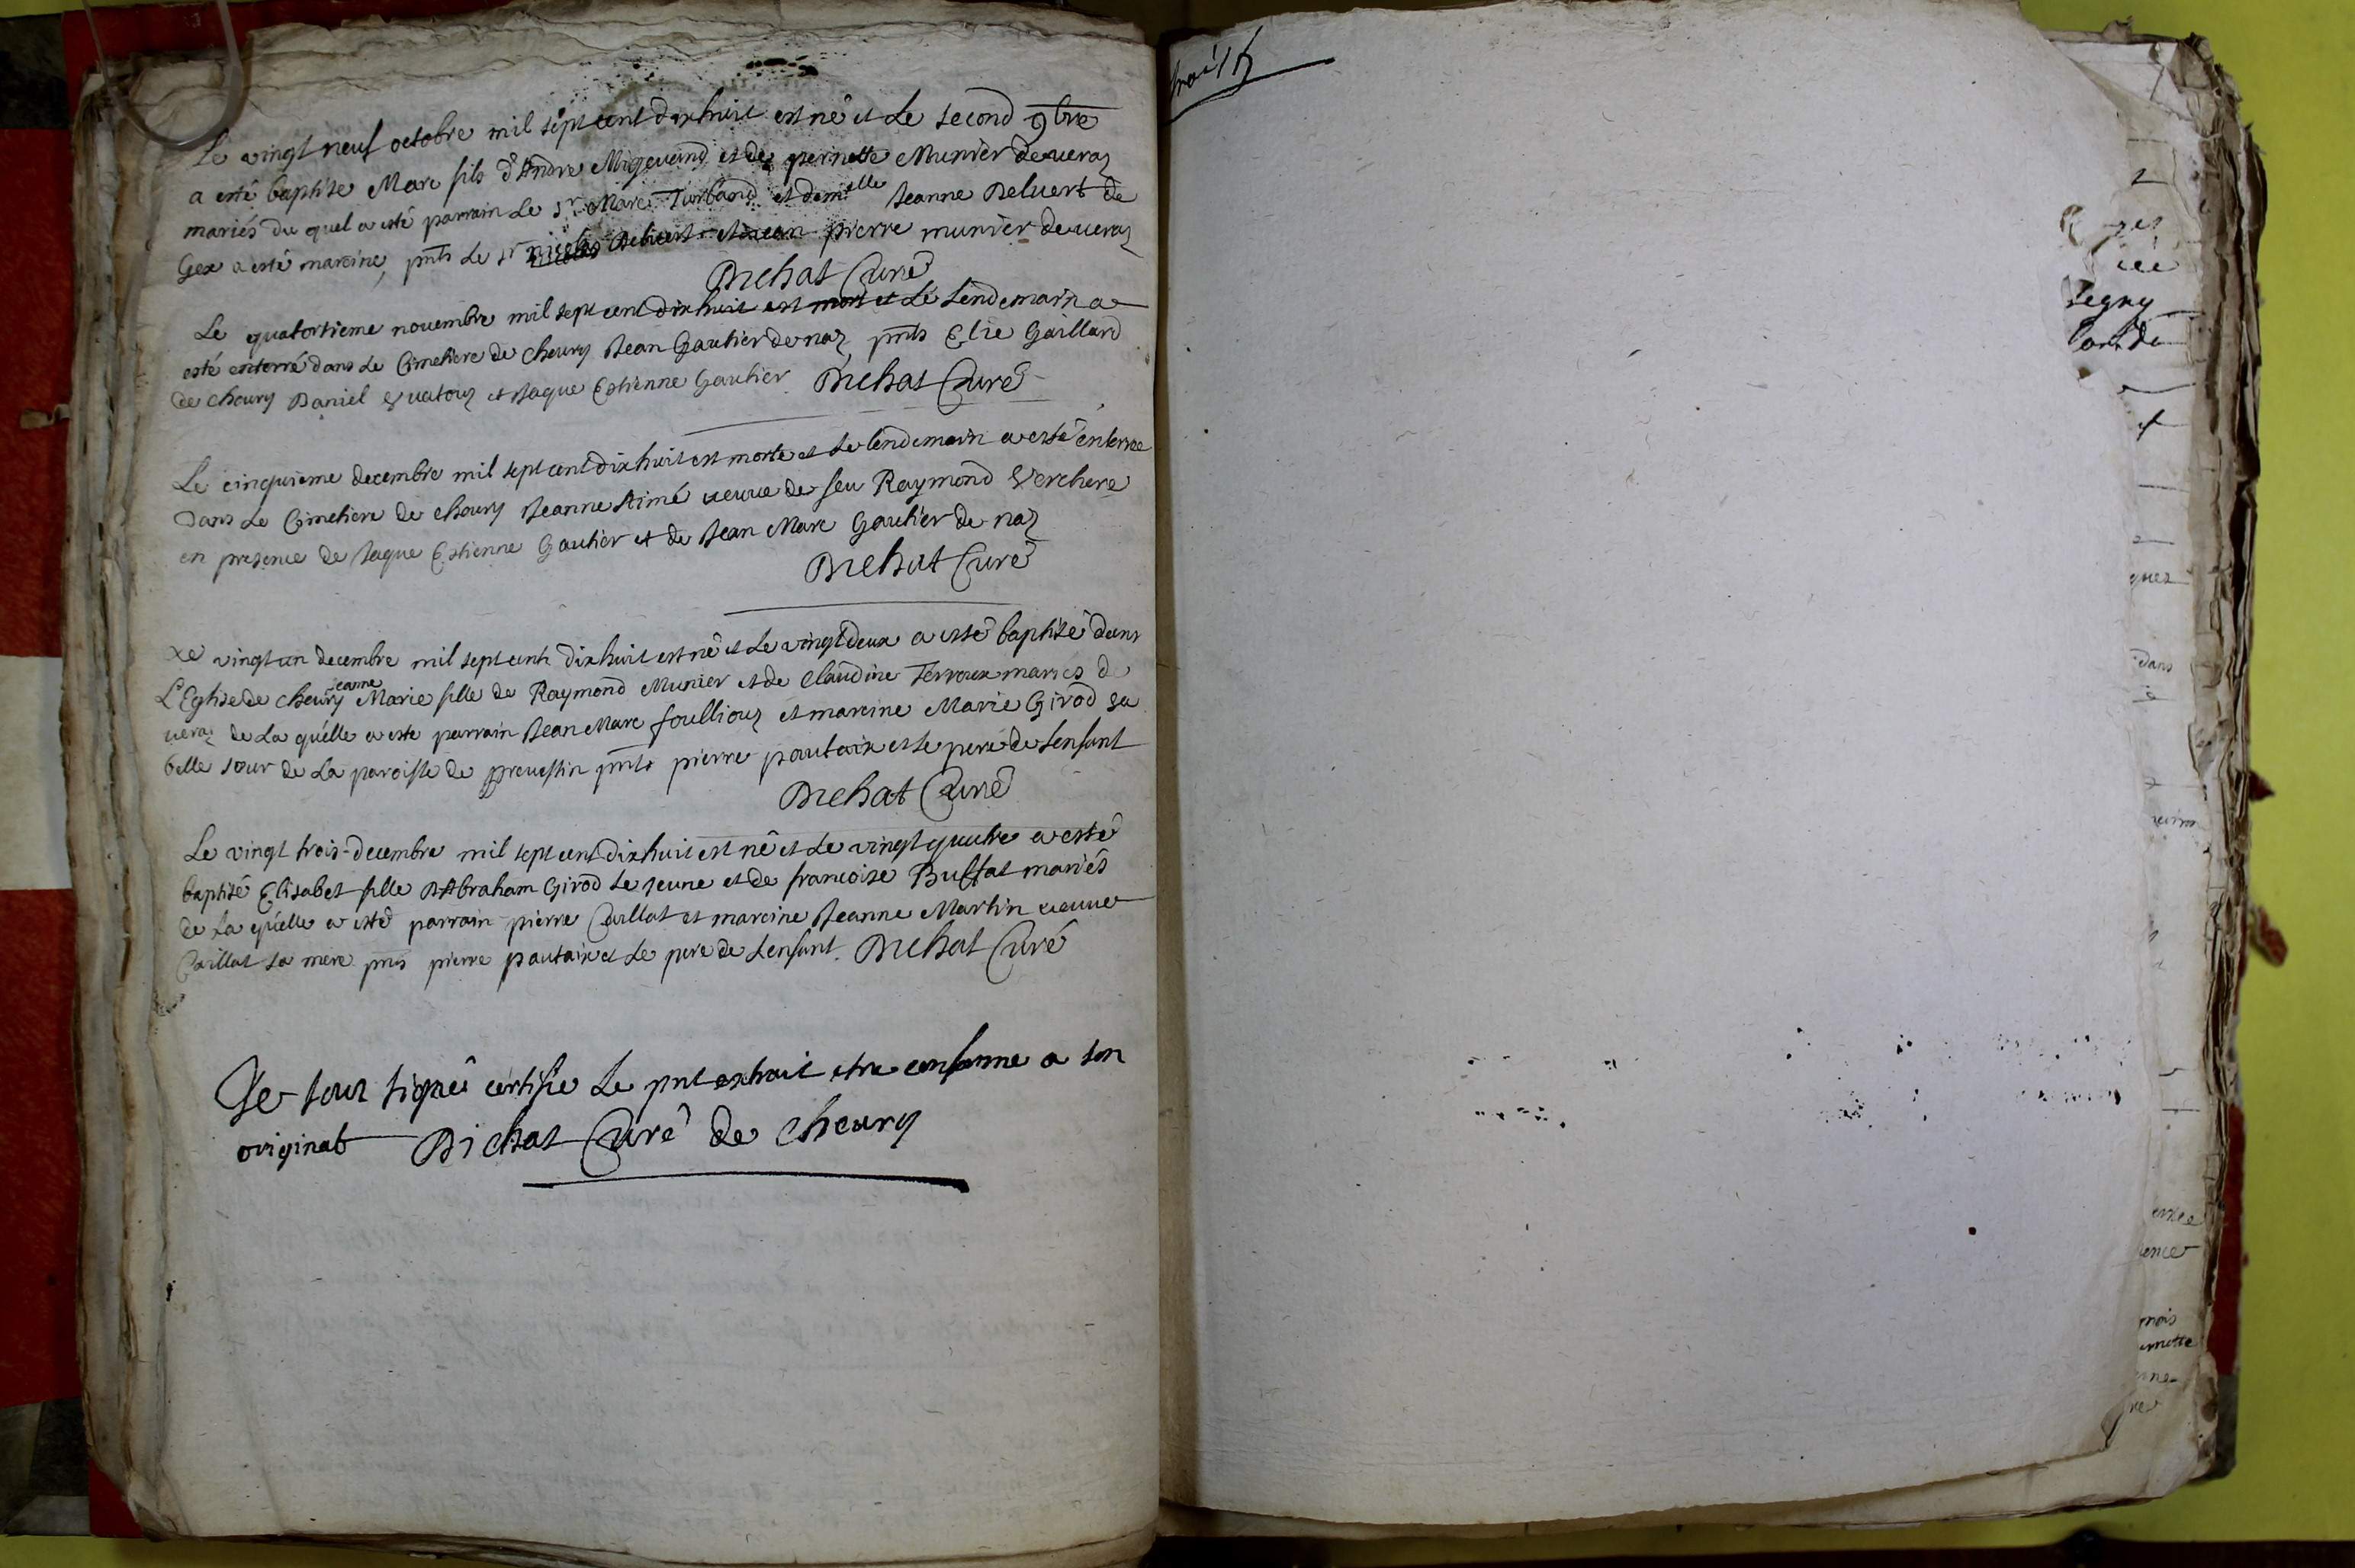 Le vingt neuf octobre mil sept cent dixhuit est né et Le second 9bre
a esté baptisé Marc fils d'Andre Migevand et de pernette Munier de veraz
mariés du quel a esté parrain Le sr Marc Turband et demelle Jeanne Deluert de
Gex a esté mareine, pnts Le sr nicolas Deluert et Jean pierre munier de veraz
Bichat Curé
Le quatorzieme novembre mil sept cent dixhuit est mort et Le Lendemain a
esté enterré dans Le Cimetiere de Chevry Jean Gautier de naz, pnts Elie Gaillard
de Chevry Daniel et Jaque Estienne Gautier. Bichat Curé
Le cinquieme decembre mil sept cent dixhuit est morte et Le lendemain a esté enterree
dans Le Cimetiere de Chevry Jeanne Aimé veuve de feu Raymond Verchere
en presence de Jaque Estienne Gautier et de Jean Marc Gautier de naz
Bichat Curé
Le vingt un decembre mil sept cent dixhuit est né et Le vingt deux a esté baptisé dans
L'Eglise de Chevry Jeanne Marie fille de Raymond Munier et de Claudine Terroux mariés de
veraz de La quélle a esté parrain Jean Marc foullioux et mareine Marie Girod sa
belle sœur de La paroisse de prevessin pnts pierre pautaix et le pere de Lenfant
Bichat Curé
Le vingt trois decembre mil sept cent dixhuit est né et Le vingt quatre a esté
baptisé Elisabet fille d'Abraham Girod Le Jeune et de francoise Buffat mariés
de La quélle a esté parrain pierre Caillat et mareine Jeanne Martin veuve
Caillat sa mere pnts pierre pautaix et Le pere de Lenfant. Bichat Curé
Je sous signé certifie Le pnt extrait etre conforme a son
original Bichat Curé de Chevry
segny
quez
dans
ence
mois